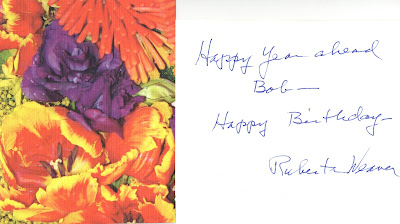 Happy Year ahead
Bob—
Happy Birthday—
Roberta Weaver